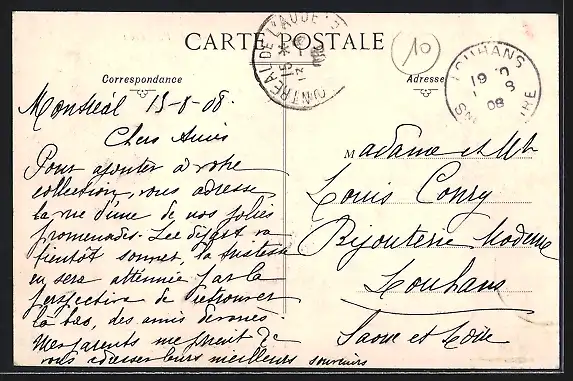 CARTE POSTALE
Correspondance
Adresse
10
MONTRÉAL DE L'AUDE
LOUHANS
08
Montréal 15-8-08.
Chers Amis
Pour ajouter à votre
collection, vous adresse
la vue d'une de nos jolies
promenades. Le départ va
bientôt sonner, la tristesse
en sera atténuée par la
perspective de retrouver
là bas, des amis dévoués.
Mes parents me prient de
vous adresser leurs meilleurs souvenirs
Madame et Mr
Louis Conry
Bijouterie Moderne
Louhans
Saone et Loire